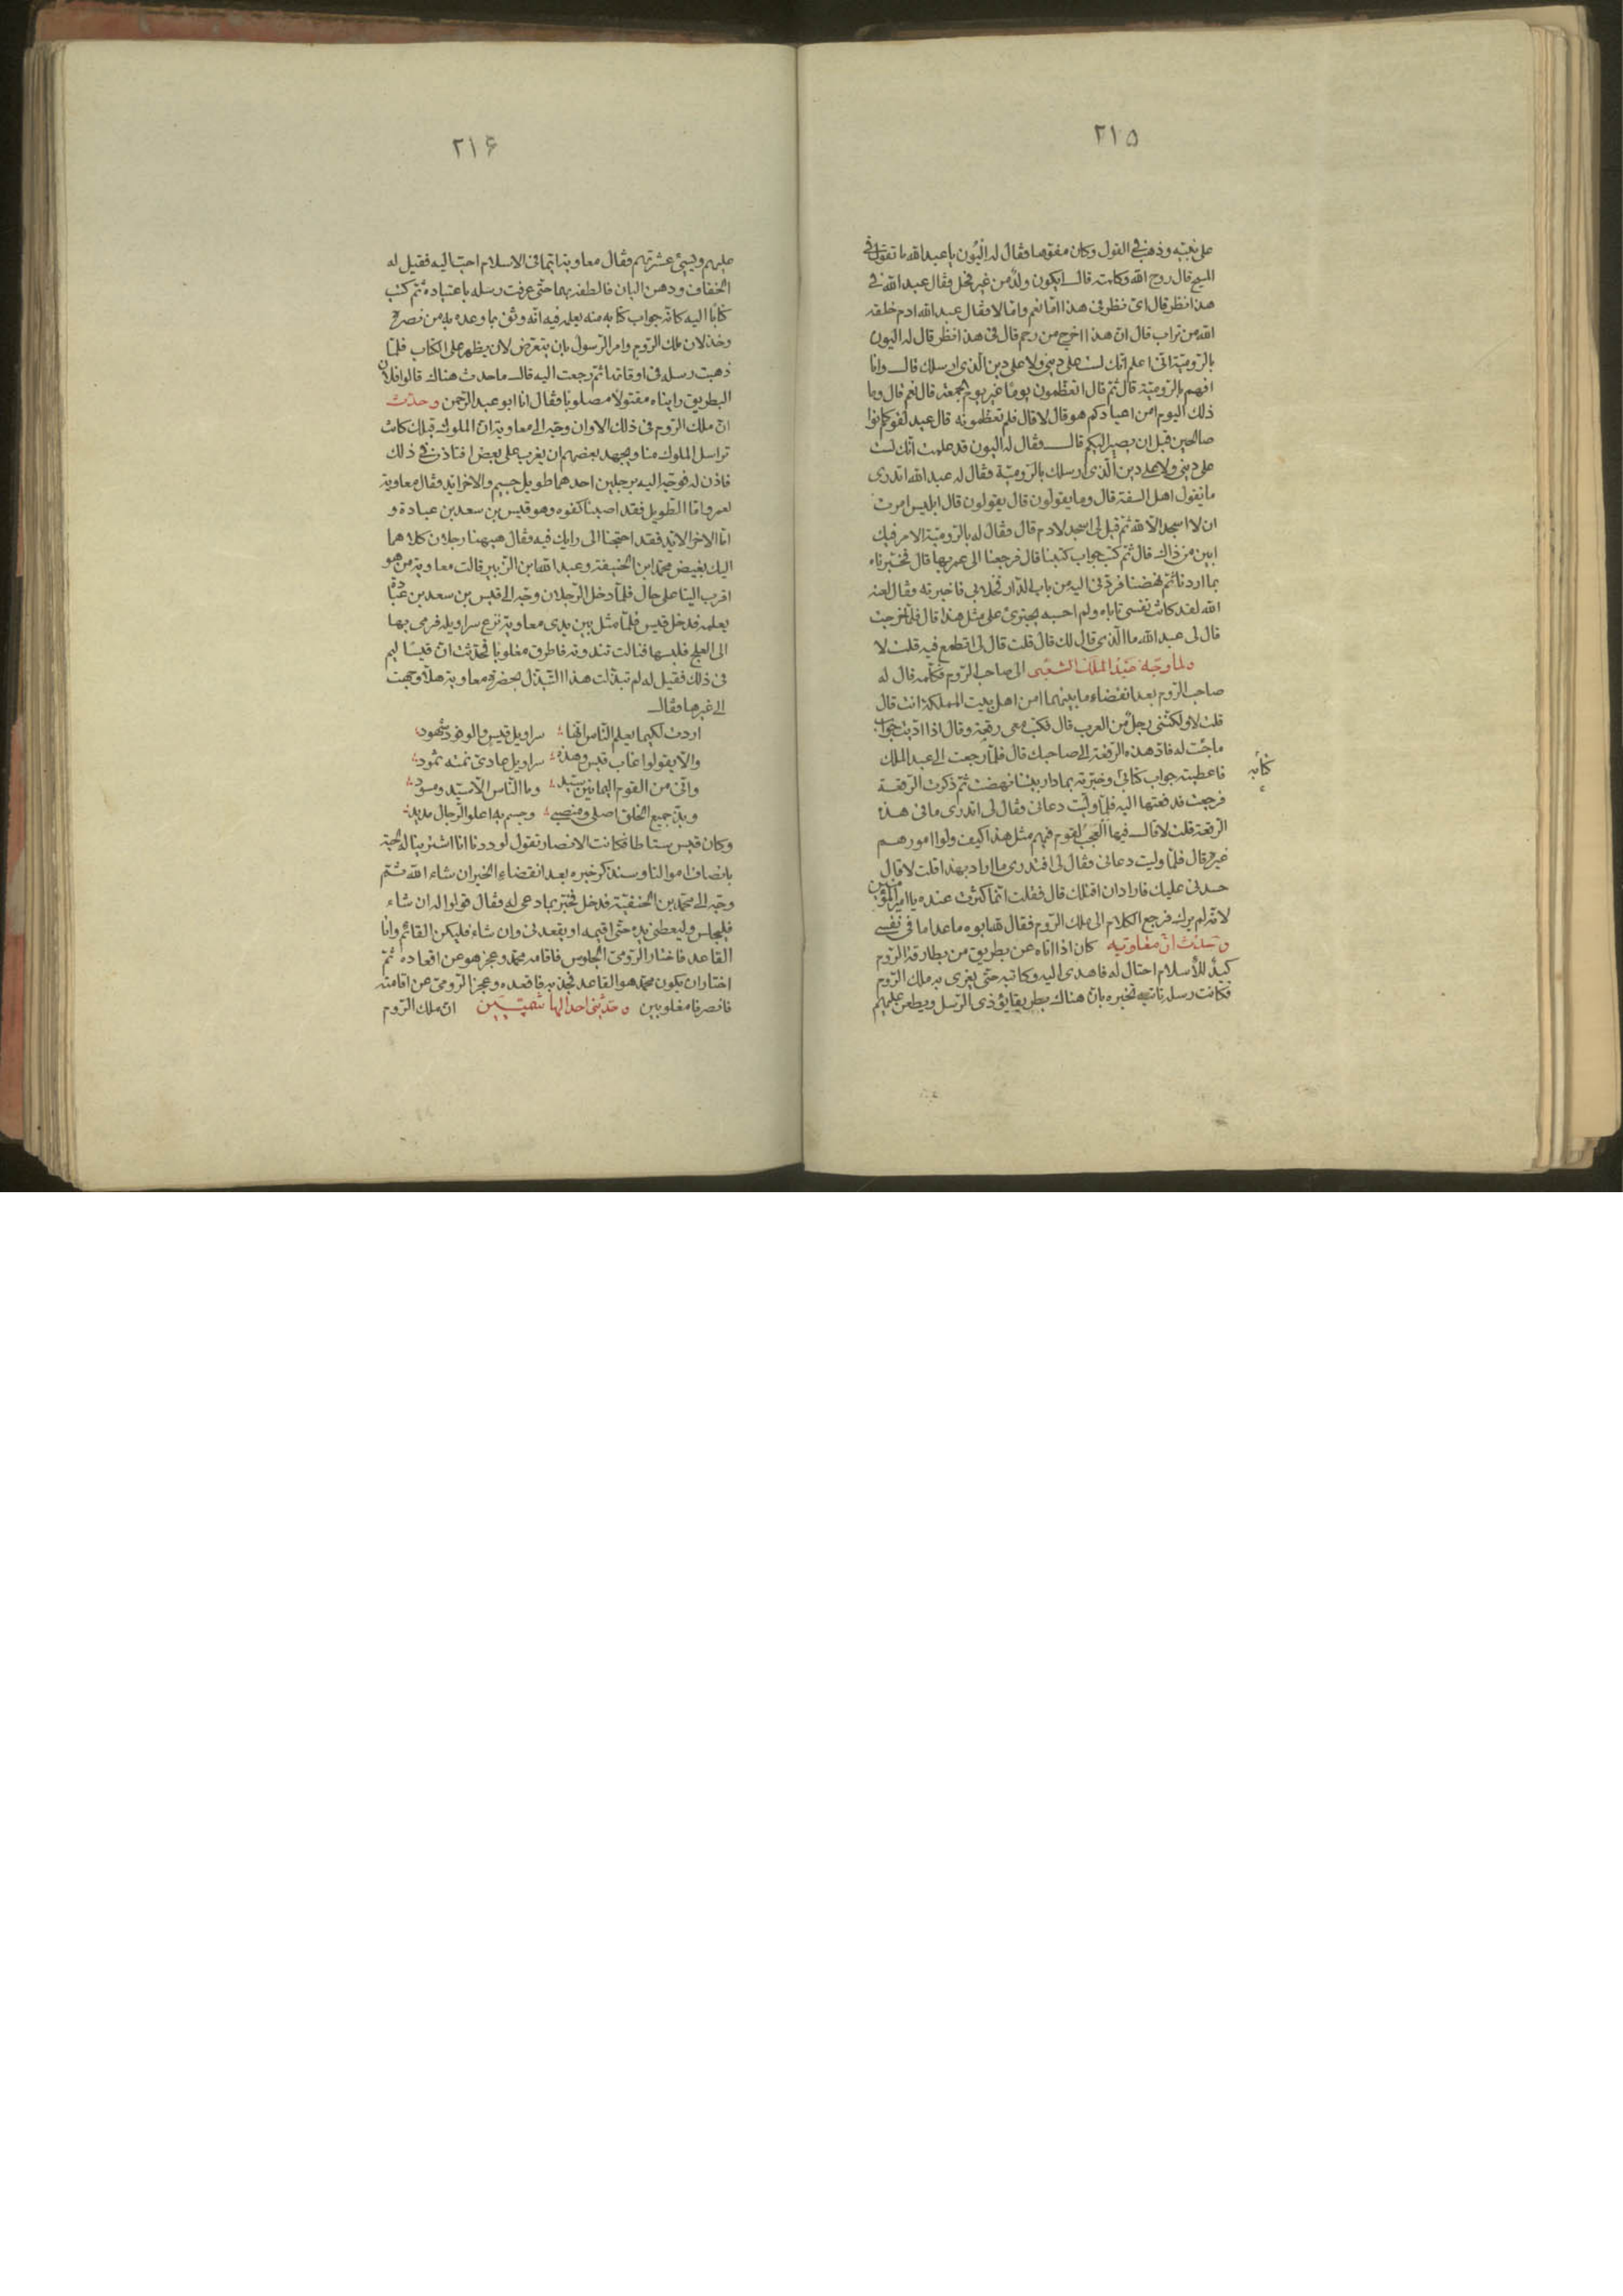 ٢١٥
على نعيه وذهب في القول وكان مفوها وقال له اليون يا عبد الله ما تقول في
المسيح قال روح الله وكلمته قال ايكون ولد من غير فحل وقال عبد الله في
هذا نظر قال اى نظر فى هذا اما نعم واما لا وقال عبد الله ادم خلقه
الله من تراب قال ان هذا اخرج من رحم قال فى هذا نظر قال له اليون
بالرومية انى اعلم انك لست على دينى ولا على دين الذى ارسلك قال وانا
افهم بالرومية قال ثم قال اتعظمون يوما غير يوم الجمعة قال نعم قال وما
ذلك اليوم امن اعيادكم هو قال لا قال فلم تعظمونه قال عيد لقوم كانوا
صالحين قبل ان يصير اليكم قال وقال له اليون قد علمت انك لست
على دينى ولا على دين الذى ارسلك بالرومية وقال له عبد الله اتدرى
ما يقول اهل السفه قال وما يقولون قال يقولون قال ابليس امرت
ان لا اسجد الا لله ثم قيل لى اسجد لادم قال وقال له بالرومية الامر فيك
ابين من ذاك قال ثم كتب جواب كتبنا قال فرجعنا الى عمر بها قال فخبرناه
بما اردنا ثم نهضنا فردنى اليه من باب الدار فخلا بى فاخبرته وقال لعنه
الله لقد كانت نفسى تاباه ولم احسبه يجترئ على مثل هذا قال فلما خرجت
قال لى عبد الله ما الذى قال لك قال قلت قال لى اتطمع فيه قلت لا
ولما وجه عبد الملك الشعبى الى صاحب الروم فكلمه قال له
صاحب الروم بعد انقضاء ما بينهما امن اهل بيت المملكة انت قال
قلت لا ولكننى رجل من العرب قال فكتب معى رقعة وقال اذا اديت جواب
ما جئت له فاد هذه الرقعة الى صاحبك قال فلما رجعت الى عبد الملك
فاعطيته جواب كتابه وخبرته بما دار بيننا نهضت ثم ذكرت الرقعة
كتابه
فرجعت فدفعتها اليه فلما وليت دعانى وقال لى اتدرى ما فى هذه
الرقعة قلت لا قال فيها العجب لقوم فيهم مثل هذا كيف ولوا امورهم
غيره قال فلما وليت دعانى وقال لى افتدرى ما اراد بهذا قلت لا قال
حسدنى عليك فاراد ان اقتلك قال فقلت انما كثرت عنده يا امير المؤمنين
لانه لم يرك فرجع الكلام الى ملك الروم فقال لله ابوه ما عدا ما فى نفسى
وحدثت ان معاوية كان اذا اتاه عن بطريق من بطارقة الروم
كيد للاسلام احتال له فاهدى اليه وكاتبه حتى يغرى به ملك الروم
فكانت رسله تاتيه فتخبره بان هناك بطريقا يؤذى الرسل ويطعن عليهم
٢١۶
عليهم ويسئ عشرتهم وقال معاوية ايما فى الاسلام احب اليه فقيل له
الخفاف ودهن البان فالطفه بهما حتى عرفت رسله باعتياده ثم كتب
كتابا اليه كانه جواب كتابه منه يعلمه فيه انه وثق بما وعده به من نصره
وخذلان ملك الروم وامر الرسول بان يتعرض لان يظهر على الكتاب فلما
ذهبت رسله فى اوقاتها ثم رجعت اليه قال ما حدث هناك قالوا فلان
البطريق رايناه مقتولا مصلوبا وقال انا ابو عبد الرحمن وحدثت
ان ملك الروم فى ذلك الاوان وجه الى معاوية ان الملوك قبلك كانت
تراسل الملوك منا ويجهد بعضهم ان يغرب على بعض افتاذن فى ذلك
فاذن له فوجه اليه برجلين احدهما طويل جسيم والاخر ايد وقال معاوية
لعمرو اما الطويل فقد اصبنا كفوه وهو قيس بن سعد بن عبادة و
اما الاخر الايد فقد احتجنا الى رايك فيه وقال هيهنا رجلان كلاهما
اليك بغيض محمد ابن الحنيفة وعبد الله ابن الزبير قالت معاوية من هو
اقرب الينا على حال فلما دخل الرجلان وجه الى قيس بن سعد بن عبادة
يعلمه فدخل قيس فلما مثل بين يدى معاوية نزع سراويله فرمى بها
الى العلج فلبسها فنالت ثندوته فاطرق مغلوبا فحدثت ان قيسا ليم
فى ذلك فقيل له لم تبذلت هذا التبذل بحضرة معاوية هلا وجهت
الى غيرها وقال
اردت لكيما يعلم الناس انها سراويل قيس والوفود شهود
والا يقولوا غاب قيس وهذه سراويل عادى نمته ثمود
وانى من القوم اليمانين سيد وما الناس الا سيد ومسود
وبذ جميع الخلق اصلى ومنصبى وجسم به اعلو الرجال مديد
وكان قيس سناطا فكانت الانصار تقول لوددنا انا اشترينا له لحية
بانصاف اموالنا وسنذكر خبره بعد انقضاء الخبر ان شاء الله ثم
وجه الى محمد بن الحنفية فدخل فخبر بما دعى له وقال قولوا له ان شاء
فليجلس وليعطنى يده حتى اقيمه او يقعدنى وان شاء فليكن القائم وانا
القاعد فاختار الرومى الجلوس فاقامه محمد وعجز هو عن اقعاده ثم
اختار ان يكون محمد هو القاعد فجذبه فاقعده وعجز الرومى عن اقامته
فانصرفا مغلوبين وحدثنى احد الهاشميين ان ملك الروم